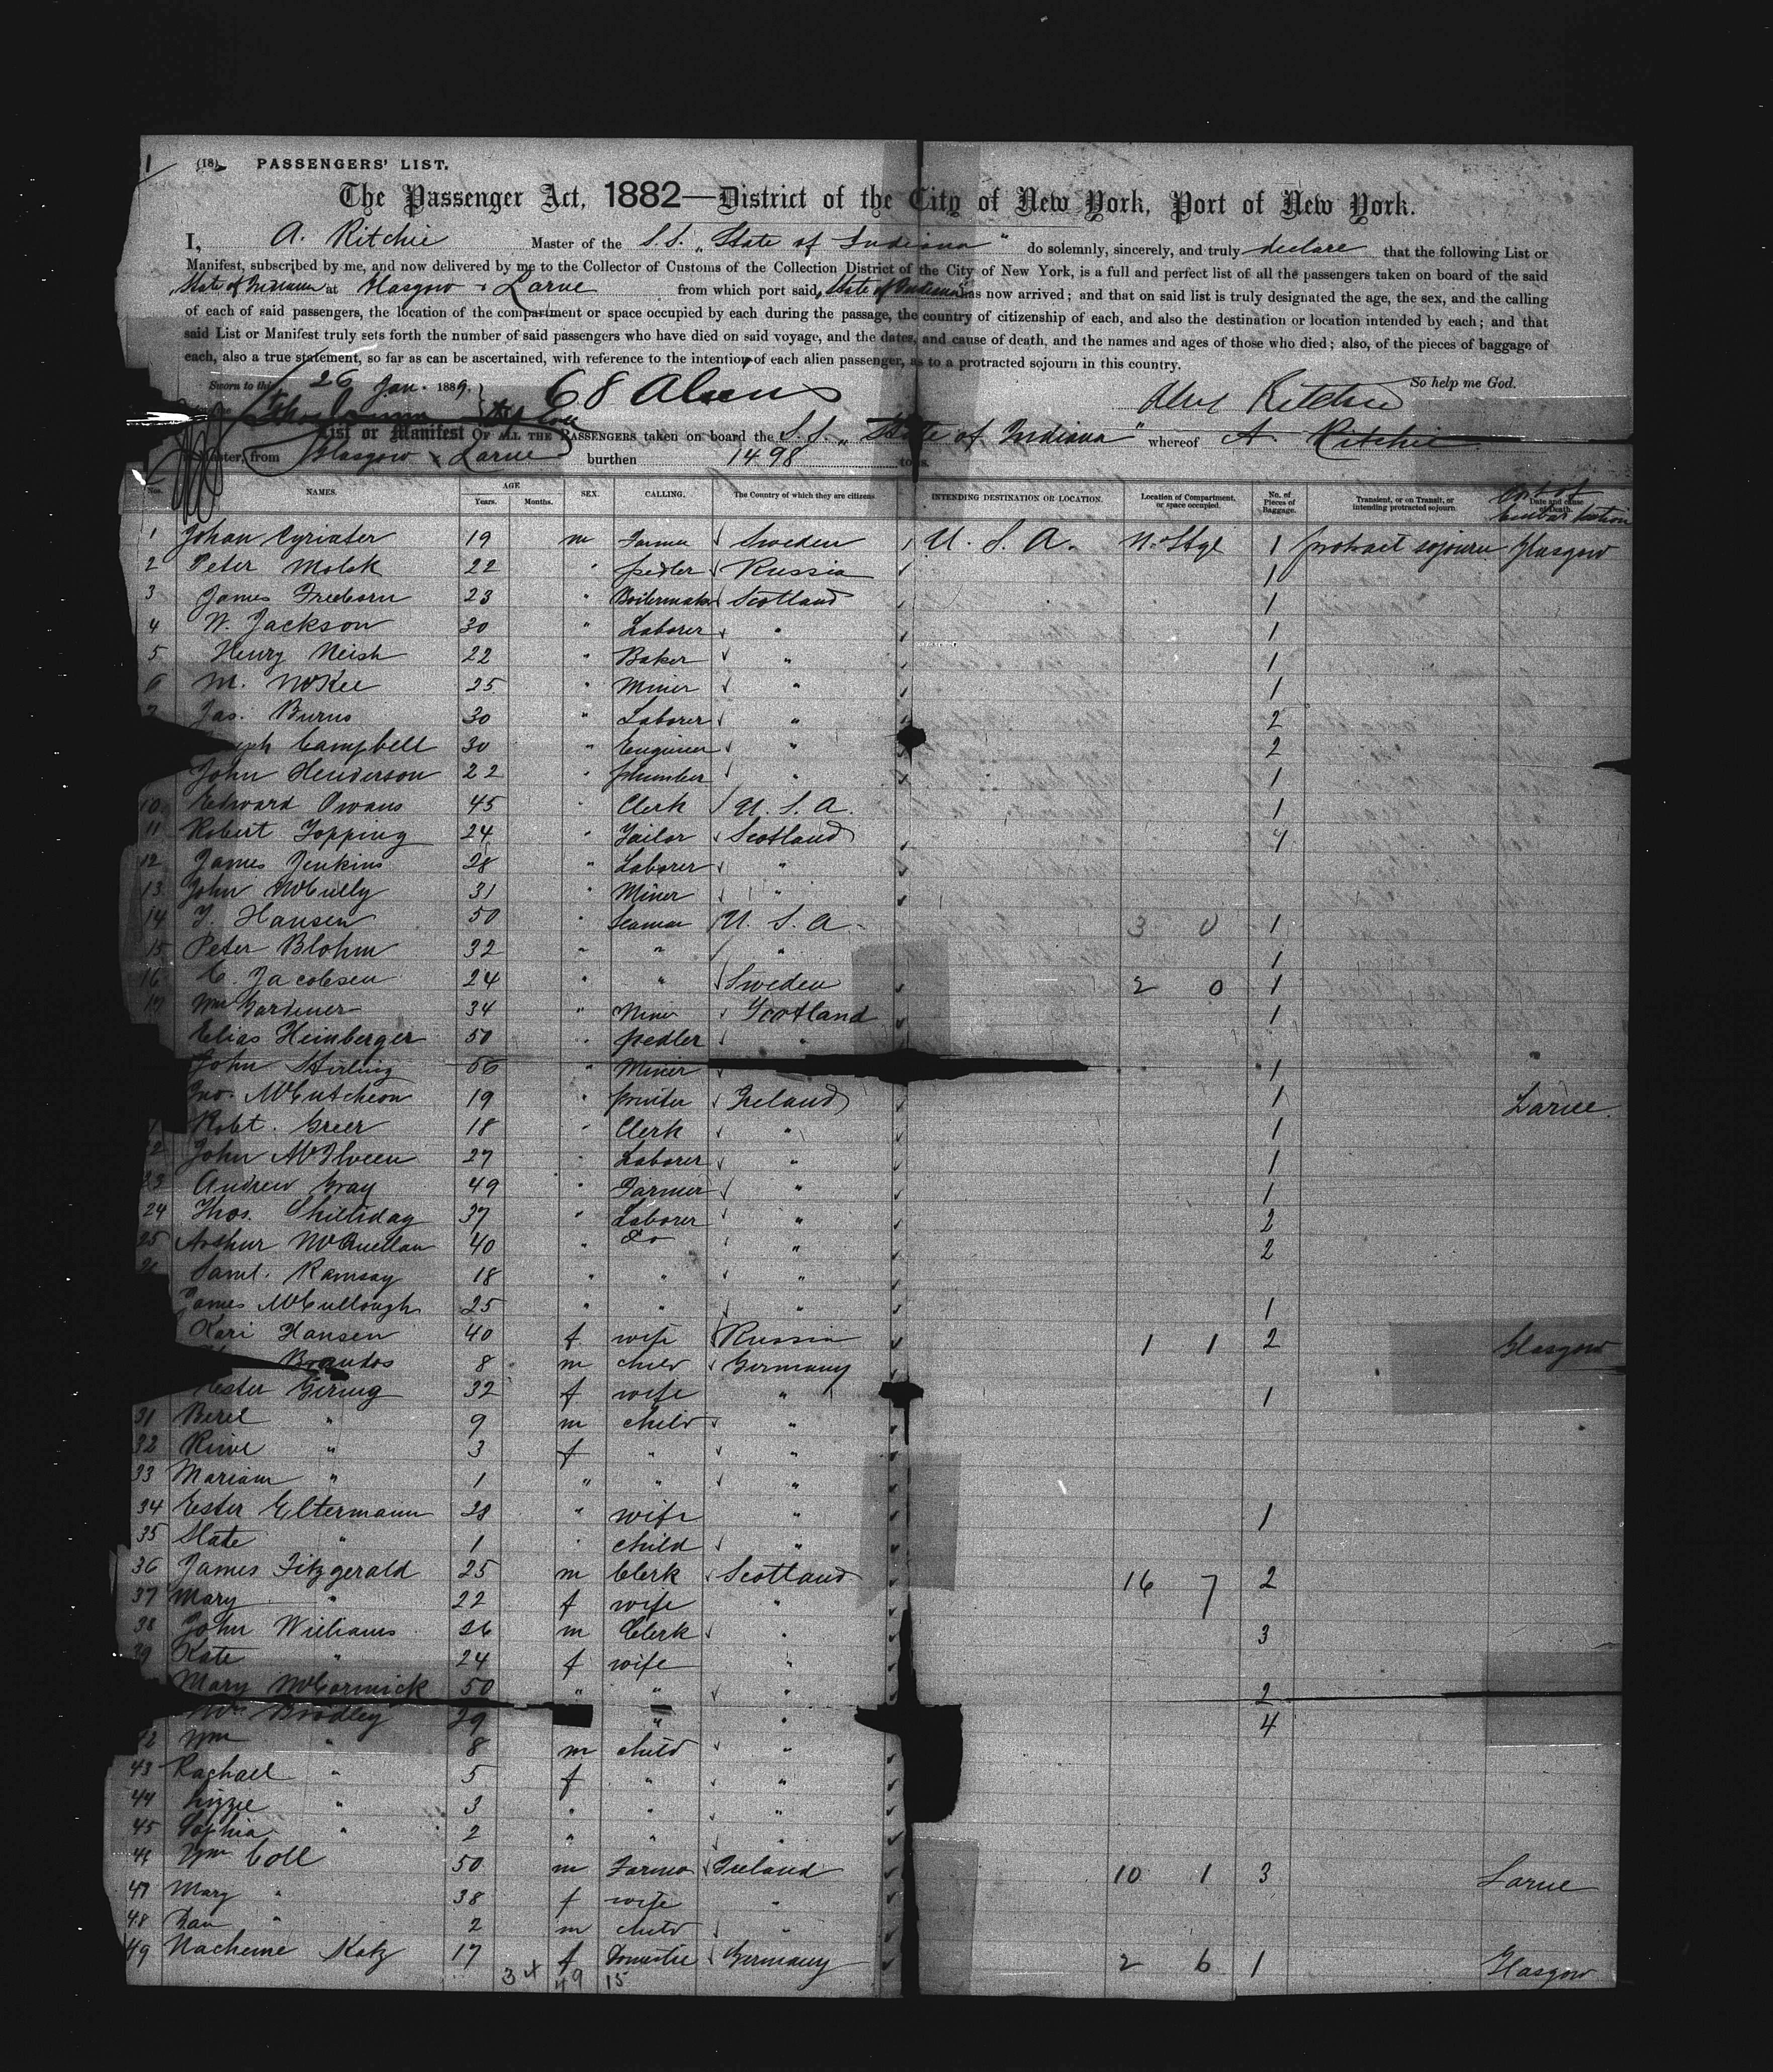 1 (18) PASSENGERS' LIST.
The Passenger Act, 1882—District of the City of New York, Port of New York.
I, A. Ritchie Master of the S.S. "State of Indiana" do solemnly, sincerely, and truly declare that the following List or
Manifest, subscribed by me, and now delivered by me to the Collector of Customs of the Collection District of the City of New York, is a full and perfect list of all the passengers taken on board of the said
State of Indiana at Glasgow & Larne from which port said "State of Indiana" has now arrived; and that on said list is truly designated the age, the sex, and the calling
of each of said passengers, the location of the compartment or space occupied by each during the passage, the country of citizenship of each, and also the destination or location intended by each; and that
said List or Manifest truly sets forth the number of said passengers who have died on said voyage, and the dates, and cause of death, and the names and ages of those who died; also, of the pieces of baggage of
each, also a true statement, so far as can be ascertained, with reference to the intention of each alien passenger, as to a protracted sojourn in this country.
So help me God.
Sworn to this 26 Jan. 1889. 68 Aliens Alex Ritchie
List or Manifest OF ALL THE PASSENGERS taken on board the S.S. "State of Indiana" whereof A. Ritchie
Master, from Glasgow & Larne burthen 1498 tons.
Nos. NAMES. AGE Years. Months. SEX. CALLING. The Country of which they are citizens INTENDING DESTINATION OR LOCATION. Location of Compartment, or space occupied. No. of Pieces of Baggage. Transient, or on Transit, or intending protracted sojourn. Date and cause of Death. Port of Embarkation
1 Johan 19 m Farmer Sweden U. S. A. 1 protract sojourn Glasgow
2 Peter Molek 22 " pedler Russia 1
3 James Freeborn 23 " Boilermaker Scotland 1
4 W. Jackson 30 " Laborer " 1
5 Henry Neish 22 " Baker " 1
6 M. McKee 25 " Miner " 1
7 Jas. Burns 30 " Laborer " 2
Campbell 30 " Engineer " 2
John Henderson 22 " plumber " 1
10 Edward Owans 45 " Clerk U. S. A. 1
11 Robert Topping 24 " Tailor Scotland 4
12 James Jenkins 28 " Laborer "
13 John McCully 31 " Miner "
14 J. Hansen 50 " Seaman U. S. A. 3 0 1
15 Peter Blohm 32 " " " 1
16 C. Jacobsen 24 " " Sweden 2 0 1
17 Wm Gardener 34 " Miner Scotland 1
Elias Heimberger 50 " pedler "
John Stirling 56 " Miner 1
Jno. McCutcheon 19 " printer Ireland 1 Larne.
Robt. Greer 18 " Clerk " 1
22 John McIlveen 27 " Laborer " 1
23 Andrew Gray 49 " Farmer " 1
24 Thos. Shilliday 37 " Laborer " 2
25 Arthur McQuellan 40 " do " 2
26 Saml. Ramsay 18 " " "
James McCullough 25 " " " 1
Kari Hansen 40 f wife Russia 1 1 2 Glasgow
Brandos 8 m child Germany
Ester Gering 32 f wife " 1
31 Berel " 9 m child "
32 Rive " 3 f " "
33 Mariam " 1 " " "
34 Ester Eltermann 28 " wife " 1
35 Slate " 1 " child "
36 James Fitzgerald 25 m Clerk Scotland 16 7 2
37 Mary " 22 f wife "
38 John Williams 26 m Clerk " 3
39 Kate " 24 f wife "
Mary McCormick 50 " " " 2
Bradley 29 " " 4
42 Wm " 8 m child "
43 Rachael " 5 f " "
44 Lizzie " 3 " " "
45 Sophia " 2 " " "
46 Wm Coll 50 m Farmer Ireland 10 1 3 Larne
47 Mary " 38 f wife "
48 Dan " 2 m child "
49 Nacheme Katz 17 f Domestic Germany 2 6 1 Glasgow
34 49 15